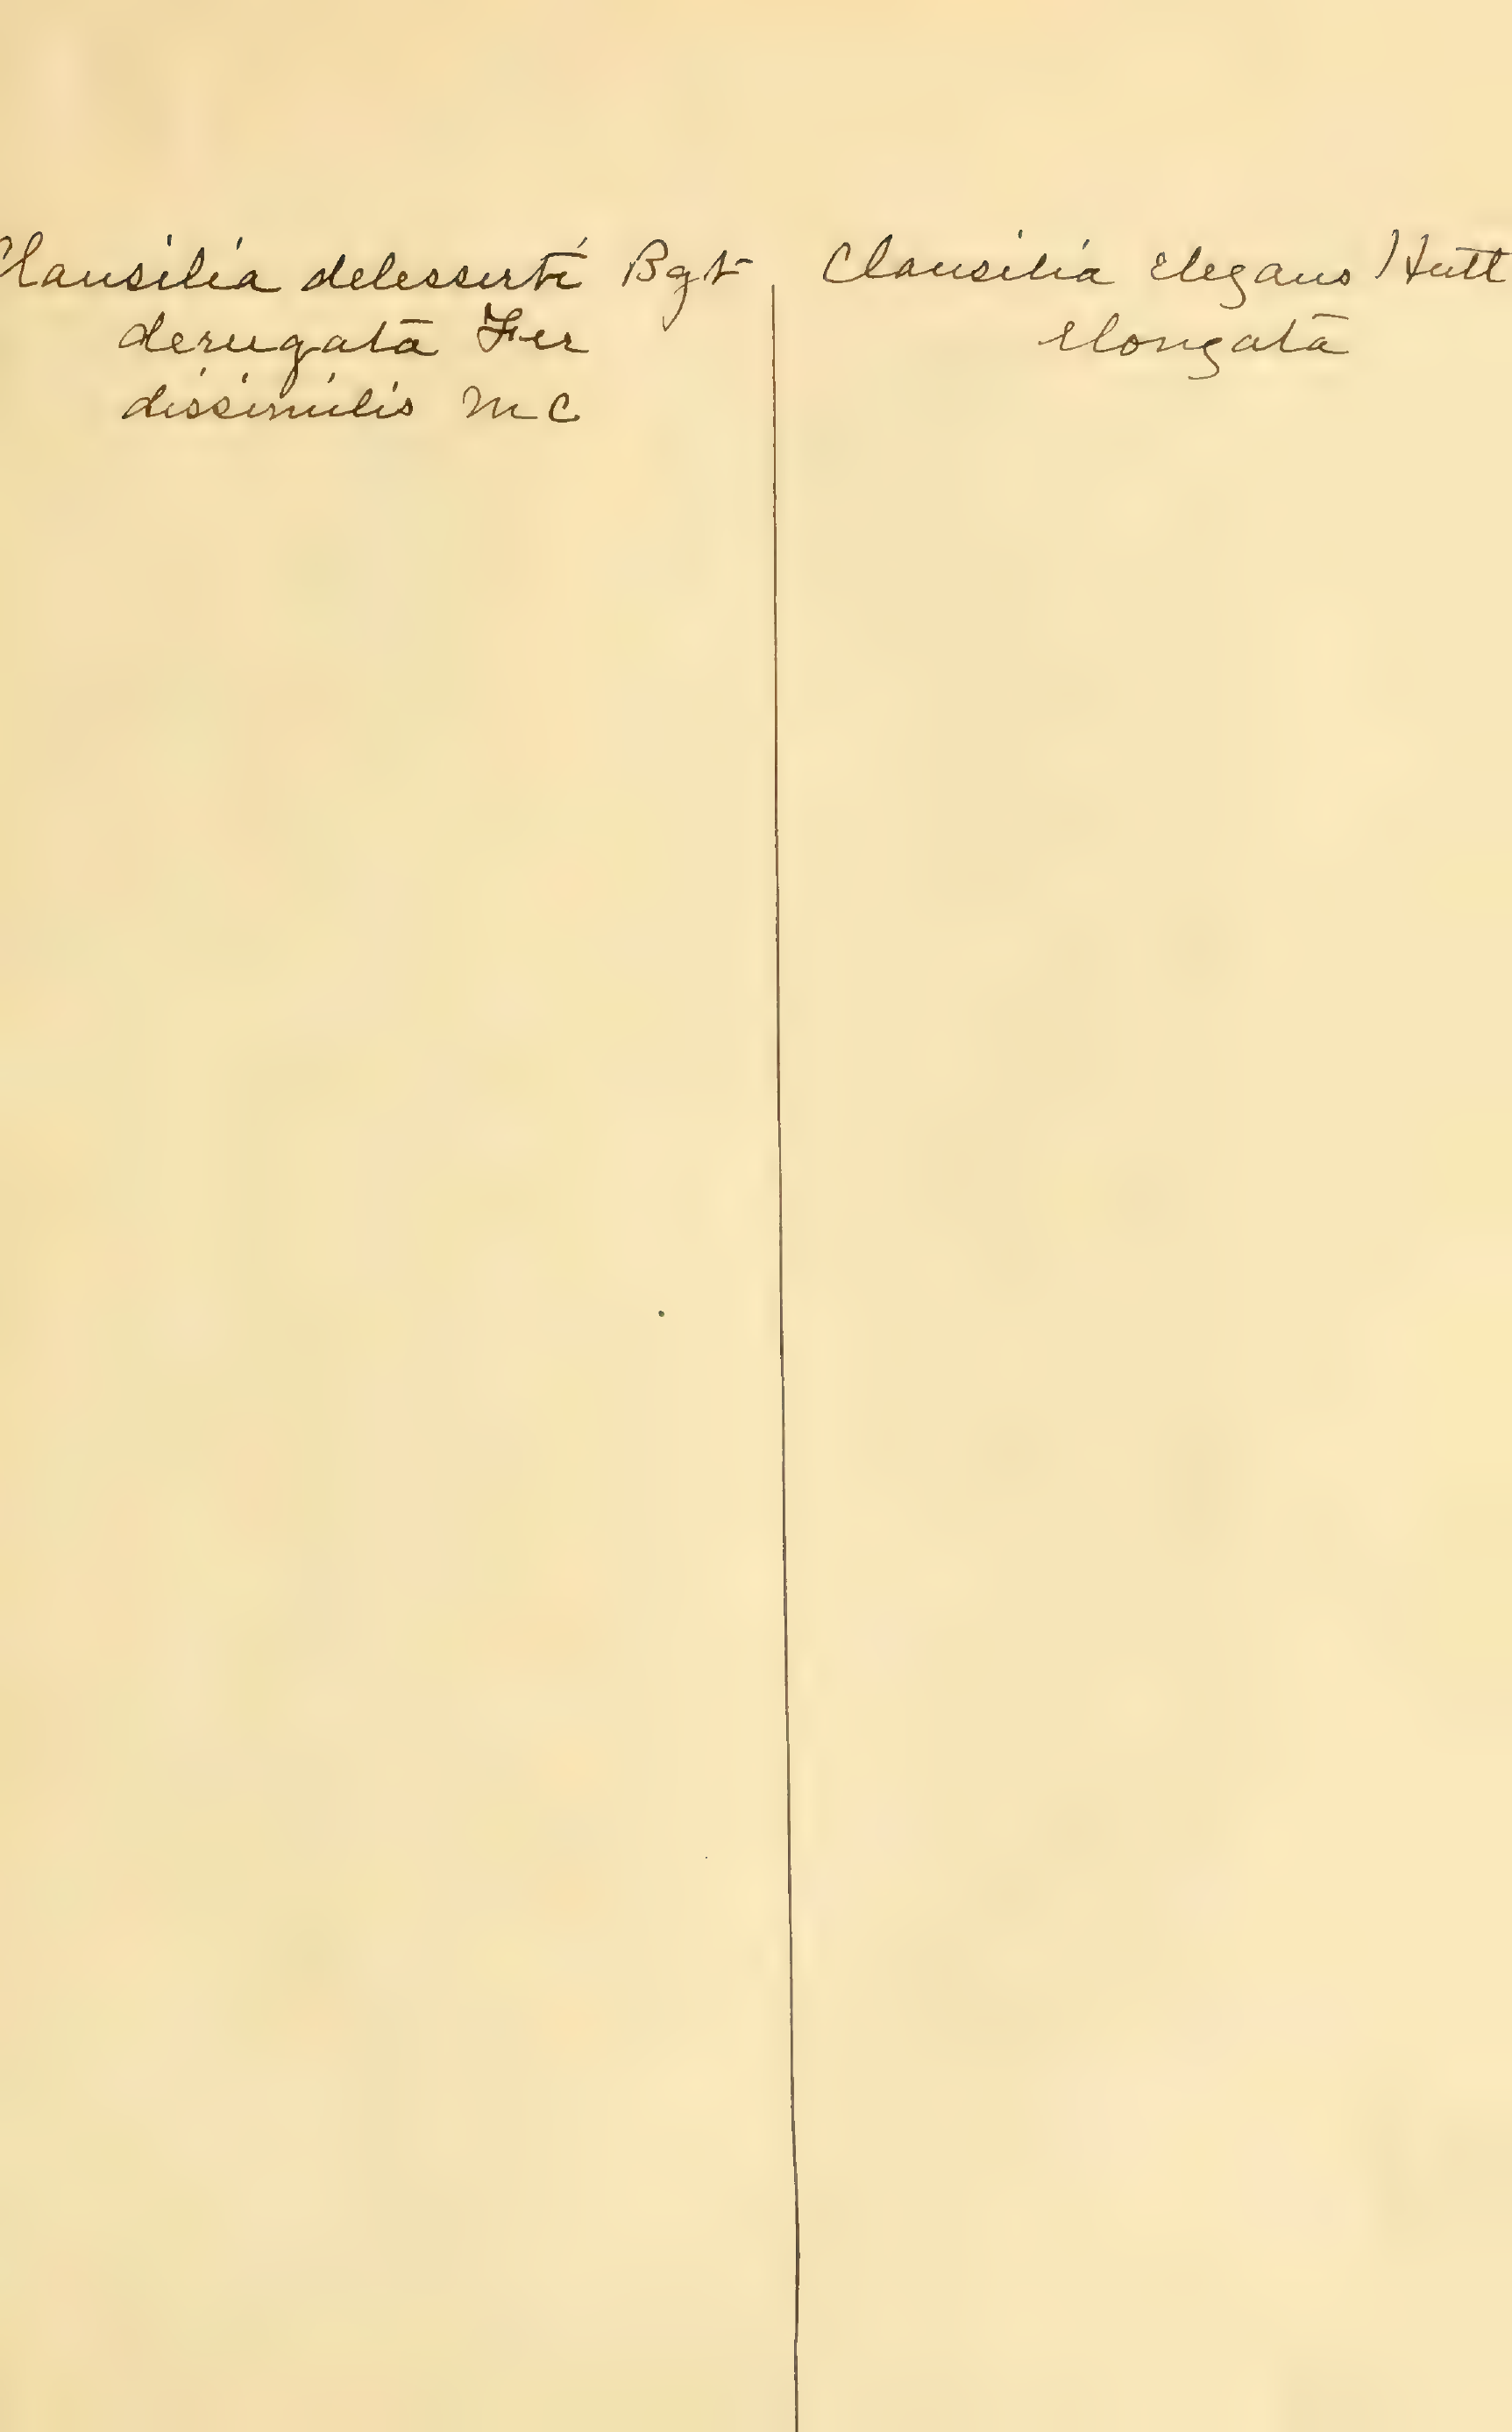 Clausilia delesserti Bgt
derugata Fer
dissimilis MC
Clausilia elegans Hutt
elongata